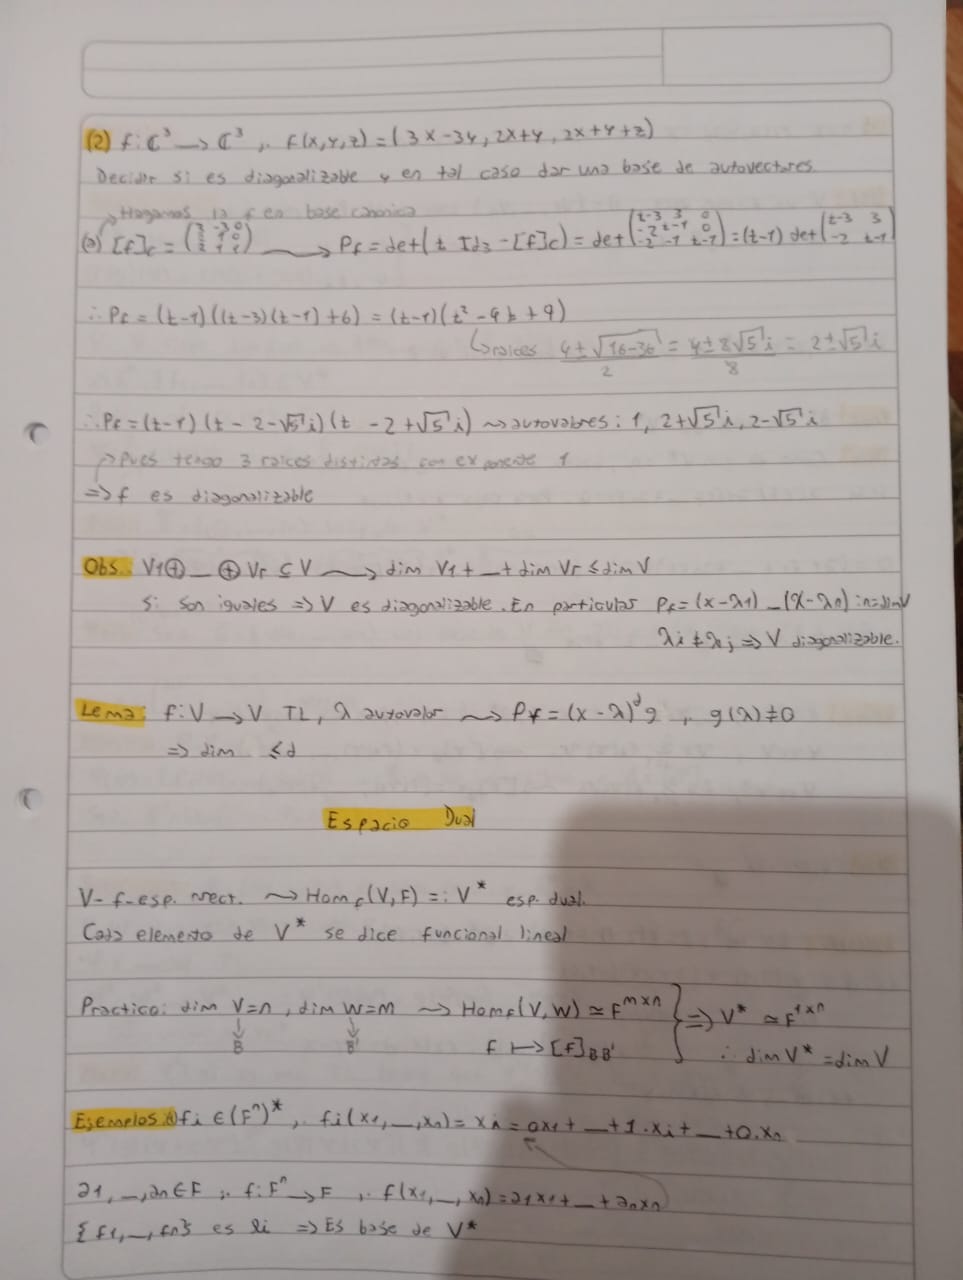 (2) f: ℂ³ → ℂ³ ,. f(x,y,z) = (3x-3y, 2x+y, 2x+y+z)
Decidir si es diagonalizable y en tal caso dar una base de autovectores.
→ Hagamos la f en base canonica
(a) [f]c = (3 -3 0 / 2 1 0 / 2 1 1) ⟶ Pf = det(t Id3 - [f]c) = det(t-3 3 0 / -2 t-1 0 / -2 -1 t-1) = (t-1) det(t-3 3 / -2 t-1)
∴ Pf = (t-1)((t-3)(t-1)+6) = (t-1)(t²-4t+9)
↳ raices (4±√16-36)/2 = (4±2√5 i)/8 = 2±√5 i
∴ Pf = (t-1)(t-2-√5 i)(t-2+√5 i) ⤳ autovalores: 1, 2+√5 i, 2-√5 i
→ Pues tengo 3 raices distintas con exponente 1
⇒ f es diagonalizable
Obs: V1⊕_⊕Vr ⊆ V ⟶ dim V1+_+dim Vr ≤ dim V
Si son iguales ⇒ V es diagonalizable. En particular Pf = (x-λ1)_(x-λn) : n=dimV
λi ≠ λj ⇒ V diagonalizable.
Lema: f: V → V TL, λ autovalor ⤳ Pf = (x-λ)ᵈ g ,. g(λ)≠0
⇒ dim ≤ d
Espacio Dual
V- f-esp. vect. ⤳ Homf(V,F) =: V* esp. dual.
Cada elemento de V* se dice funcional lineal
Practica: dim V=n, dim W=m ⤳ HomF(V,W) ≃ F^{m×n} } ⇒ V* ≃ F^{1×n}
↓ B ↓ B' f ↦ [f]BB' ∴ dim V* = dim V
Ejemplos: A) fi ∈ (Fⁿ)* ,. fi(x1,_,xn) = xi = 0x1+_+1.xi+_+0.xn
a1,_,an ∈ F ,. f: Fⁿ → F ,. f(x1,_,xn) = a1x1+_+anxn
{f1,_,fn} es li ⇒ Es base de V*